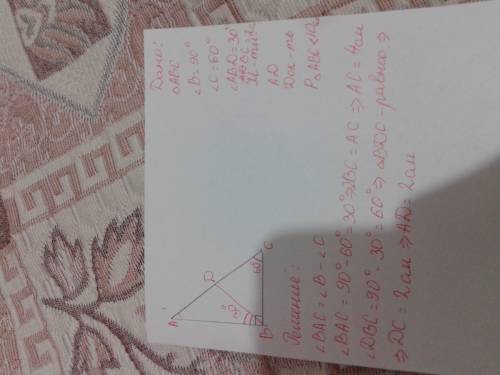 Дано:
△ABC
∠B=90°
∠C=60°
∠ABD=30°
AD
Док-ть
P△ABC<
A
D
C
B
30°
60°
Решение:
∠BAC=∠B-∠C
∠BAC=90°-60°=30°⇒2BC=AC⇒AC=4см
∠DBC=90°-30°=60°⇒△BDC-равнос.⇒
⇒DC=2см⇒AD=2см